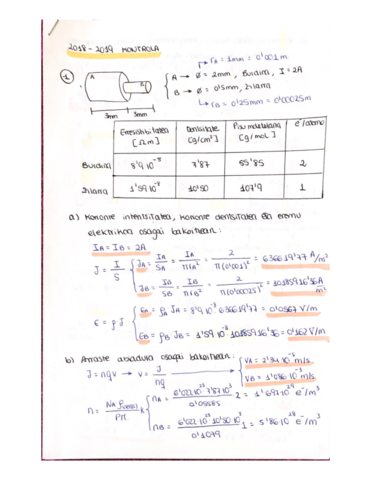 2018-2019 KONTROLA
→ rA = 1mm = 0'001m
1. A B
A → Ø = 2mm, Burdina, I = 2A
B → Ø = 0'5mm, Zilarra
→ rB = 0'25mm = 0'00025m
3mm 3mm
Erresistibitatea [Ωm] Densitatea [g/cm³] Pisu molekularra [g/mol] e⁻/atomo
Burdina 8'9·10⁻⁸ 7'87 55'85 2
Zilarra 1'59·10⁻⁸ 10'50 107'9 1
a) Korronte intentsitatea, korronte dentsitatea eta eremu
elektrikoa osagai bakoitzean:
IA = IB = 2A
J = I/S { JA = IA/SA = IA/πrA² = 2/π(0'001)² = 636619'77 A/m²
JB = IB/SB = IB/πrB² = 2/π(0'00025)² = 10185916'36 A/m²
E = ρJ { EA = ρA JA = 8'9·10⁻⁸ · 636619'77 = 0'0567 V/m
EB = ρB JB = 1'59·10⁻⁸ · 10185916'36 = 0'162 V/m
b) Arraste abiadura osagai bakoitzean:
J = nqv → v = J/nq { vA = 2'34·10⁻⁵ m/s
vB = 1'086·10⁻³ m/s
nA = 6'022·10²³ 7'87·10³/0'05585 2 = 1'697·10²⁹ e⁻/m³
nB = 6'022·10²³ 10'50·10³/0'1079 1 = 5'86·10²⁸ e⁻/m³